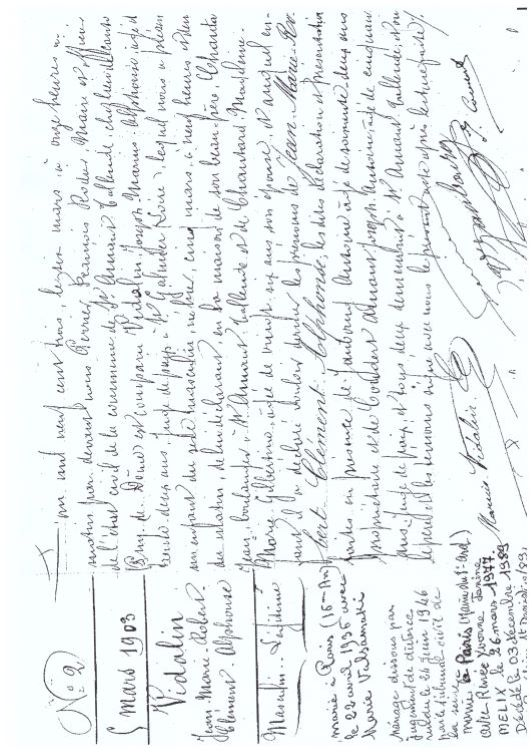 N° 2
5 mars 1903
Vidalin
Jean Marie Robert
Clément Alphonse
Masculin. Légitime
marié à Paris (16e Arr)
le 22 avril 1936 avec
Marie Valsamaki
Mariage dissous par
jugement de divorce
rendu le 26 juin 1946
par le tribunal civil de
la Seine
marié à Paris
avec Renée Yvonne Janine
MELIX le 26 mars 1977.
Décédé le 03 décembre 1989
L'an mil neuf cent trois, le six mars à onze heures du
matin par devant nous Pierrre François Rodde Maire et officier
de l'état civil de la commune de St Amant Tallende, chef lieu de canton
Puy de Dôme est comparu Vidalin Joseph Marius Alphonse âgé de
trente deux ans juge de paix à St Galmier Loire, lequel nous a présenté
un enfant du sexe masculin né hier, cinq mars à neuf heures et demie
du matin, de lui déclarant, en la maison de son beau père, Chautard
Jean, boulanger à St Amant Tallende et de Chautard Magdeleine
Marie Gilbertine, âgée de vingt six ans son épouse, et auquel en-
fant il a déclaré vouloir donner les prénoms de Jean Marie Ro-
bert Clément Alphonse, les dites déclaration et présentation
faites en présence de Antoine âgé de soixante deux ans
propriétaire et de Joseph Antoine, âgé de cinquante
ans, juge de paix, et tous deux demeurant à St Amant Tallende, et ont
le père et les témoins signé avec nous le présent acte après lecture faite
Marius Vidalin